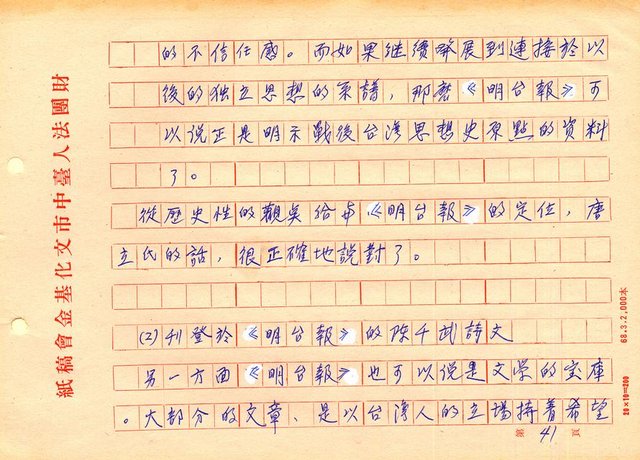 的不信任感。而如果继續發展到連接於以
後的独立思想的系譜，那麽《明台報》可
以说正是明示戰後台湾思想史原點的資料
了。
從歷史性的觀點给与《明台報》的定位，唐
立氏的話，很正確地説對了。
(2)刊登於《明台報》的陈千武詩文
另一方面《明台報》也可以说是文學的宝庫
。大部分的文章，是以台湾人的立場拚着希望
第 41 頁
財團法人臺中市文化基金會稿紙
68.3.2,000本
20×10=200